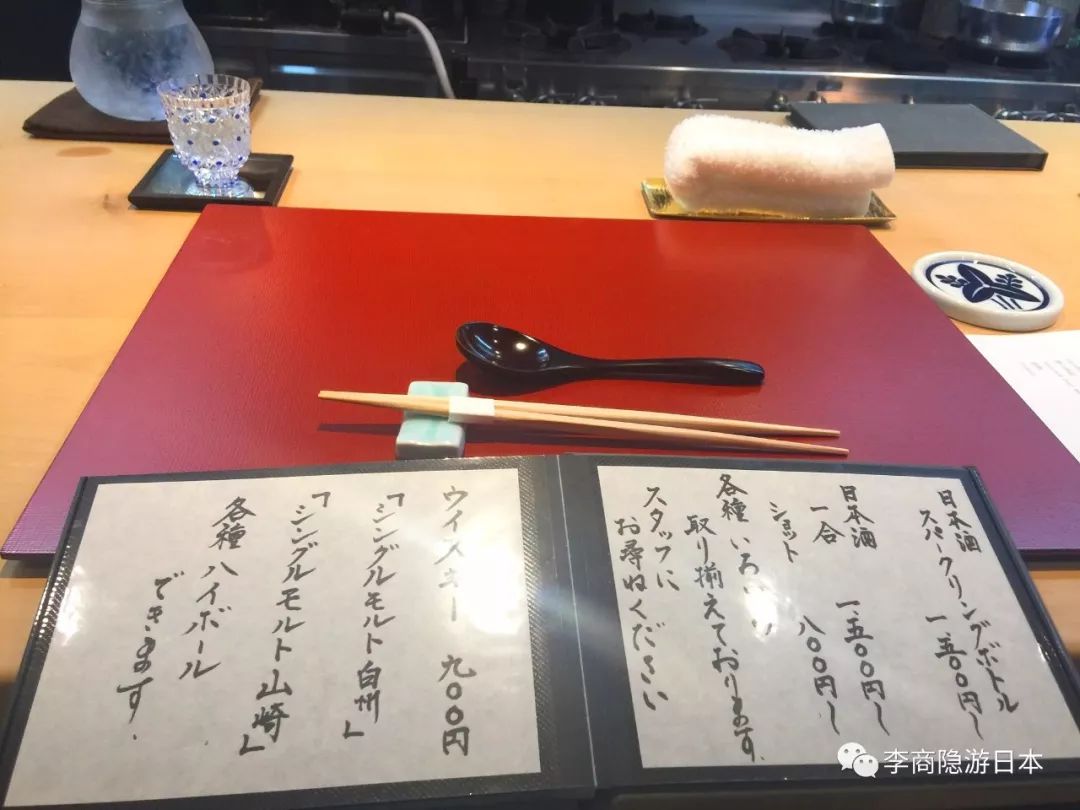 日本酒
スパークリングボトル
一、五〇〇円〜
日本酒
一合 一、五〇〇円〜
ショット 八〇〇円〜
各種いろいろ
取り揃えております。
スタッフに
お尋ねください
ウイスキー 九〇〇円
「シングルモルト白州」
「シングルモルト山崎」
各種ハイボール
できます。
李商隐游日本